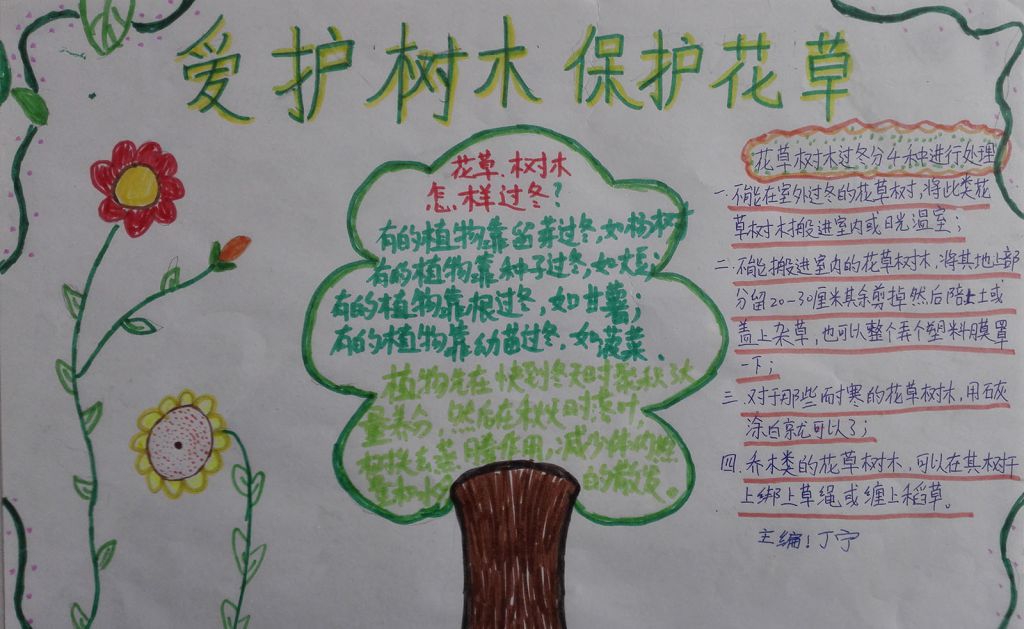 爱护树木 保护花草
花草.树木
怎样过冬?
有的植物靠留芽过冬,如杨树
有的植物靠种子过冬,如大豆;
有的植物靠根过冬,如甘薯;
有的植物靠幼苗过冬,如菠菜.
植物先在快到冬天时聚积
量养分,然后在秋时落叶,
作用,减少体内
量和水 的散发。
花草树木过冬分4种进行处理
一.不能在室外过冬的花草树,将此类花
草树木搬进室内或日光温室;
二.不能搬进室内的花草树木,将其地上部
分留20-30厘米其余剪掉然后陪上土或
盖上杂草,也可以整个弄个塑料膜罩
一下;
三.对于那些耐寒的花草树木,用石灰
涂白就可以了;
四.乔木类的花草树木,可以在其树干
上绑上草绳或缠上稻草。
主编:丁宁